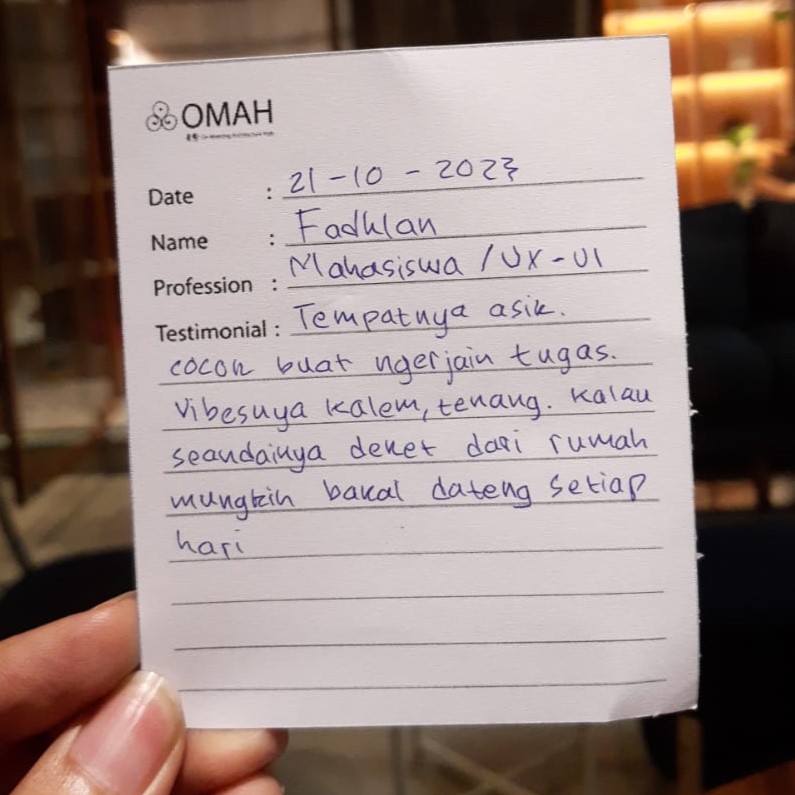 OMAH
Date : 21-10-2023
Name : Fadhlan
Profession : Mahasiswa / UX-UI
Testimonial : Tempatnya asik.
cocok buat ngerjain tugas.
Vibesnya kalem, tenang. Kalau
seandainya deket dari rumah
mungkin bakal dateng setiap
hari